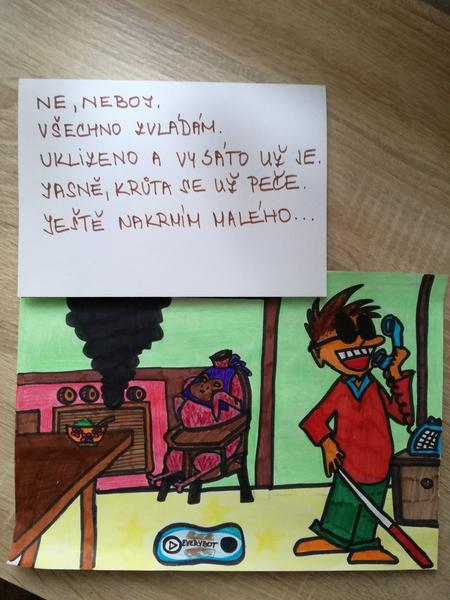 NE, NEBOJ.
VŠECHNO ZVLÁDÁM.
UKLIZENO A VYSÁTO UŽ JE.
JASNĚ, KRŮTA SE UŽ PEČE.
JEŠTĚ NAKRMÍM MALÉHO...
EVERYBOT